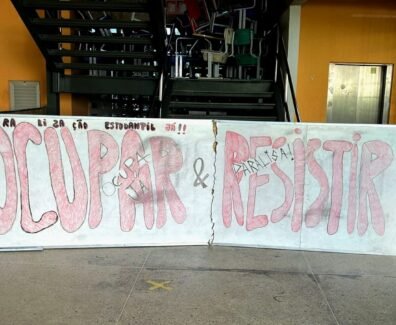 RALIZAÇÃO ESTUDANTIL JÁ!!
OCUPAR & RESISTIR
OCUPA JÁ
PARALISA!